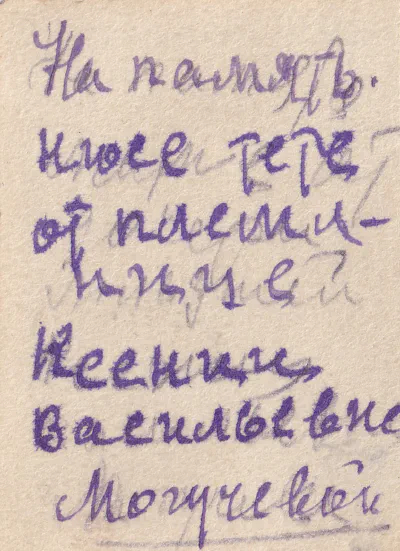 На память.
нюсе тете
от племя-
ницей
Ксении
Васильевне
Могучевой